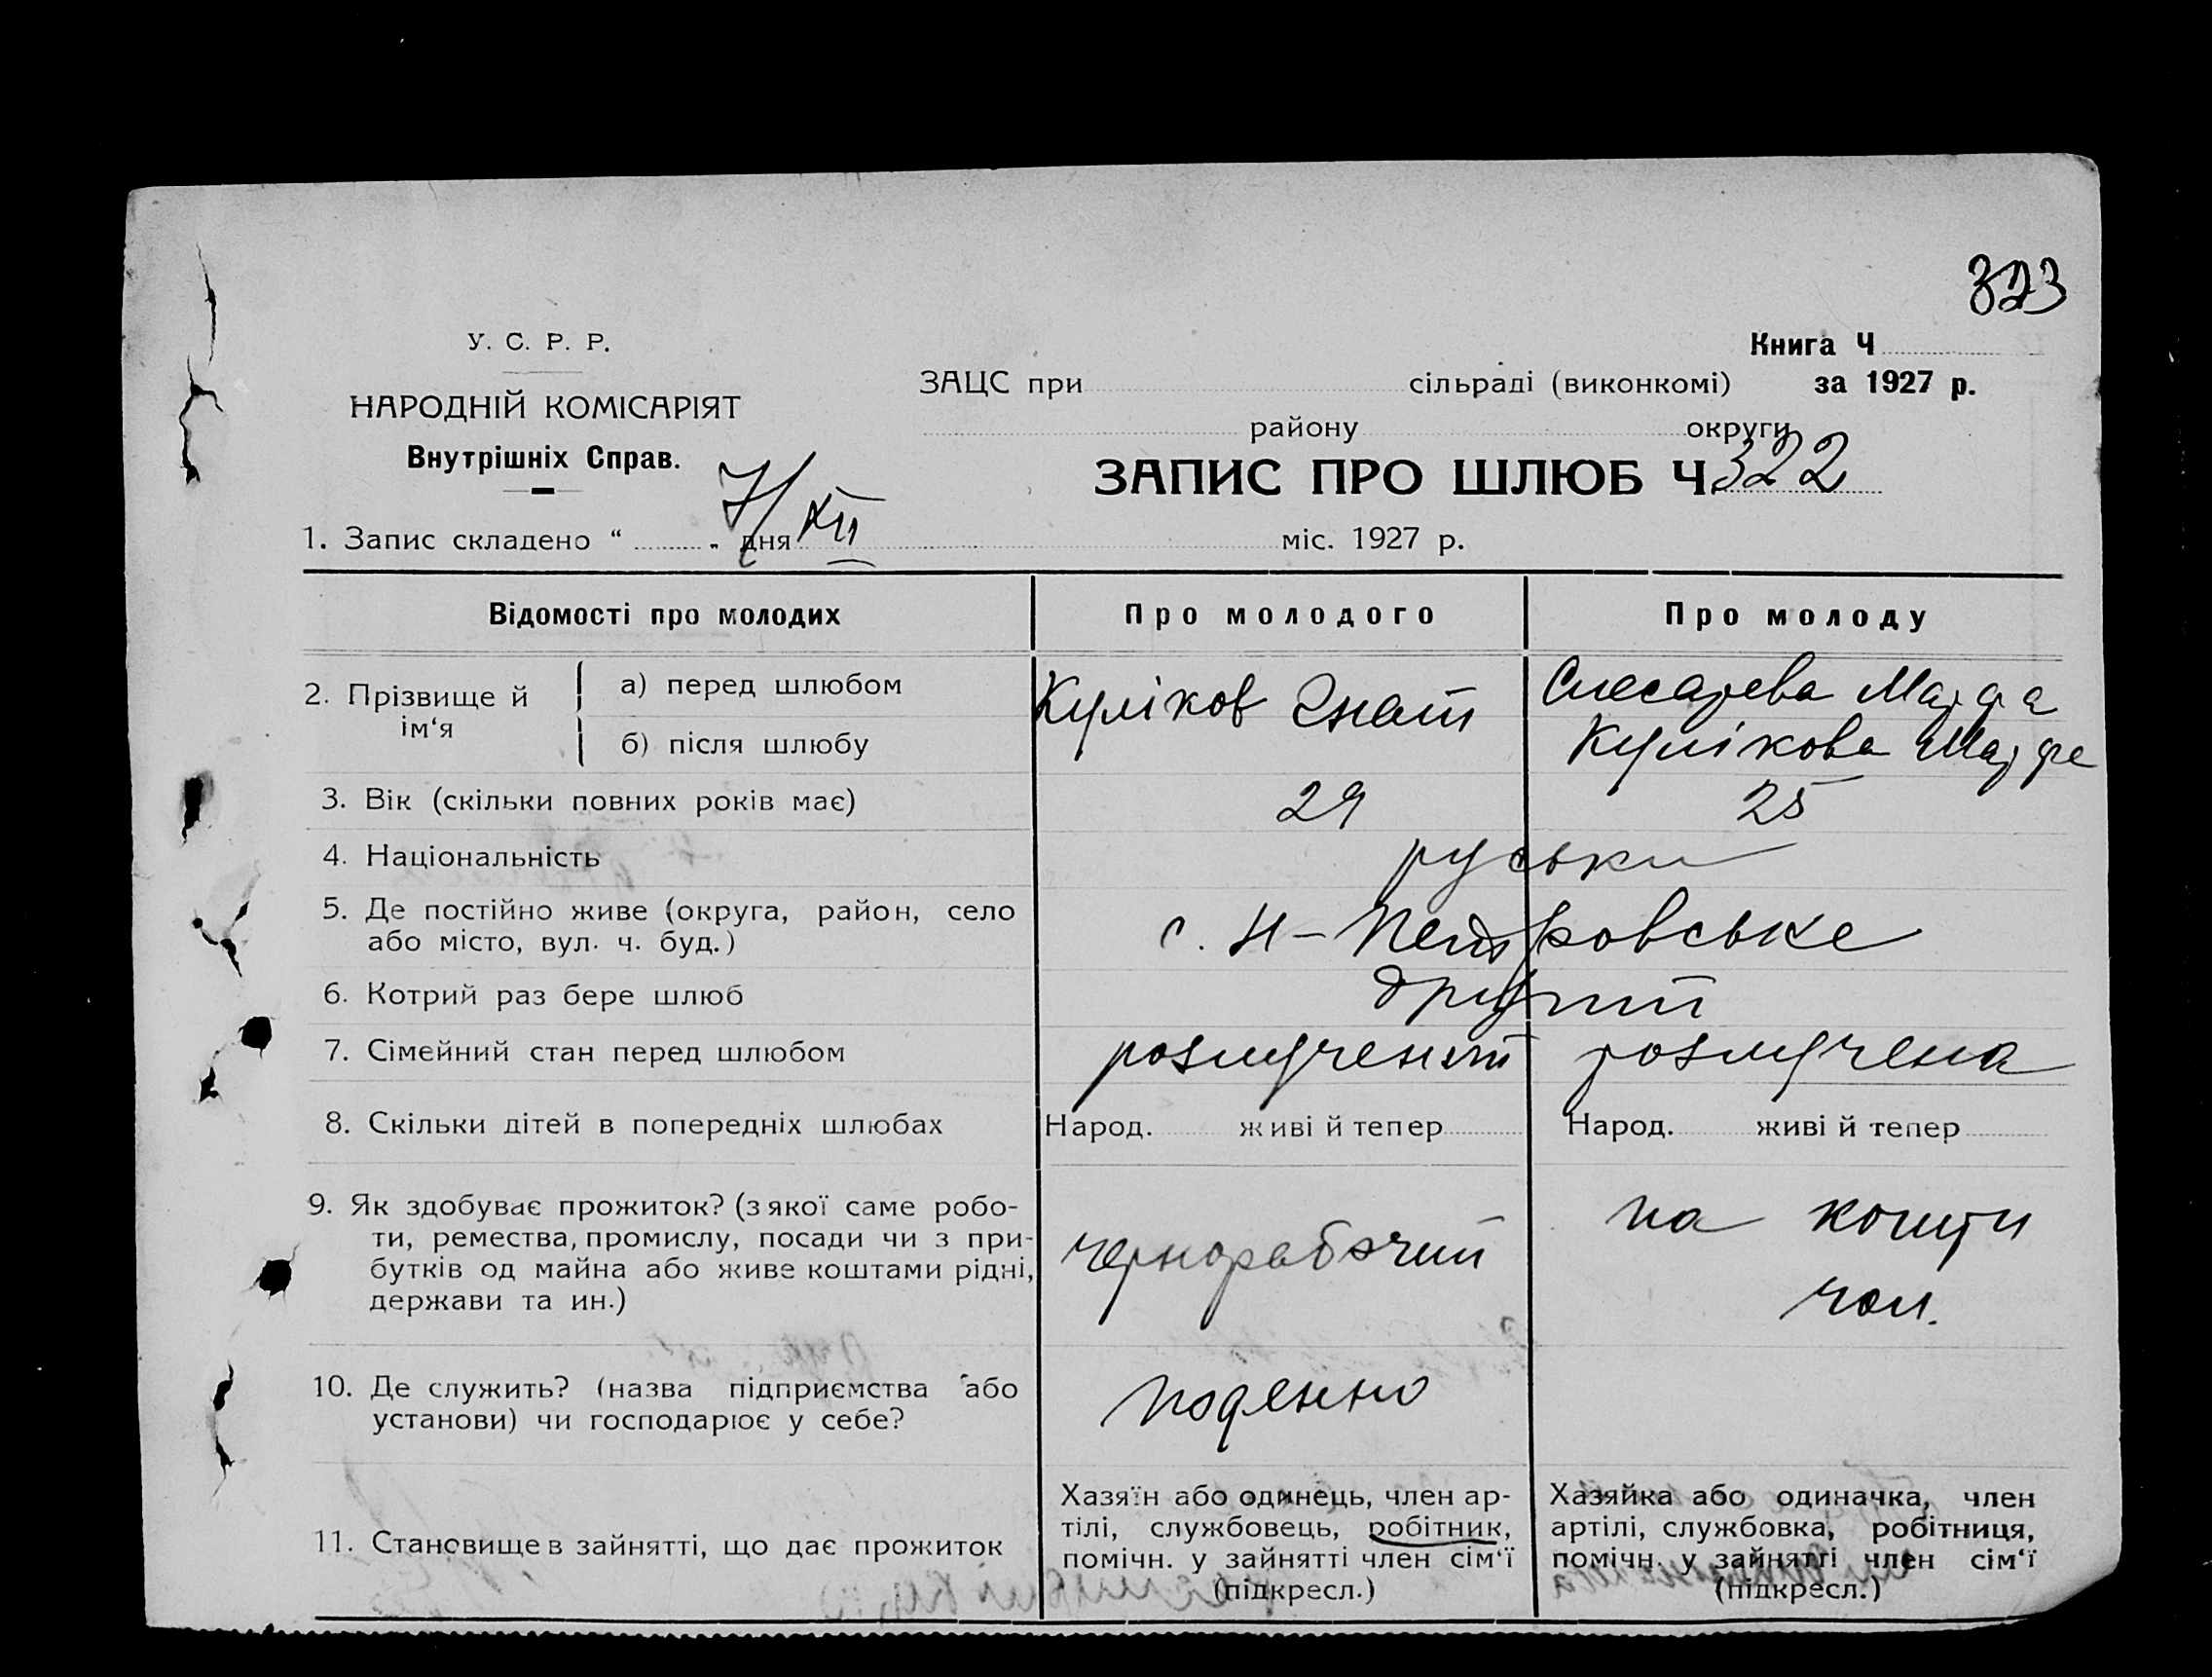 323
У. С. Р. Р.
НАРОДНІЙ КОМІСАРІЯТ
Внутрішніх Справ.
Книга Ч
ЗАЦС при сільраді (виконкомі) за 1927 р.
району округи
ЗАПИС ПРО ШЛЮБ Ч. 322
1. Запис складено “ „ дня 7/XII міс. 1927 р.
Відомості про молодих
Про молодого
Про молоду
2. Прізвище й ім‘я
а) перед шлюбом
Куліков Гнат
Слесарева Марфа
б) після шлюбу
Кулікова Марфа
3. Вік (скільки повних років має)
29
25
4. Національність
руськи
5. Де постійно живе (округа, район, село
або місто, вул. ч. буд.)
с. Н-Петровське
6. Котрий раз бере шлюб
другий
7. Сімейний стан перед шлюбом
розлучений
розлучена
8. Скільки дітей в попередніх шлюбах
Народ. живі й тепер
Народ. живі й тепер
9. Як здобуває прожиток? (з якої саме робо-
ти, ремества, промислу, посади чи з при-
бутків од майна або живе коштами рідні,
держави та ин.)
чернорабочий
на кошти
чол.
10. Де служить? (назва підприємства або
установи) чи господарює у себе?
поденно
11. Становище в зайнятті, що дає прожиток
Хазяїн або одинець, член ар-
тілі, службовець, робітник,
помічн. у зайнятті член сім‘ї
(підкресл.)
Хазяйка або одиначка, член
артілі, службовка, робітниця,
помічн. у зайнятті член сім‘ї
(підкресл.)